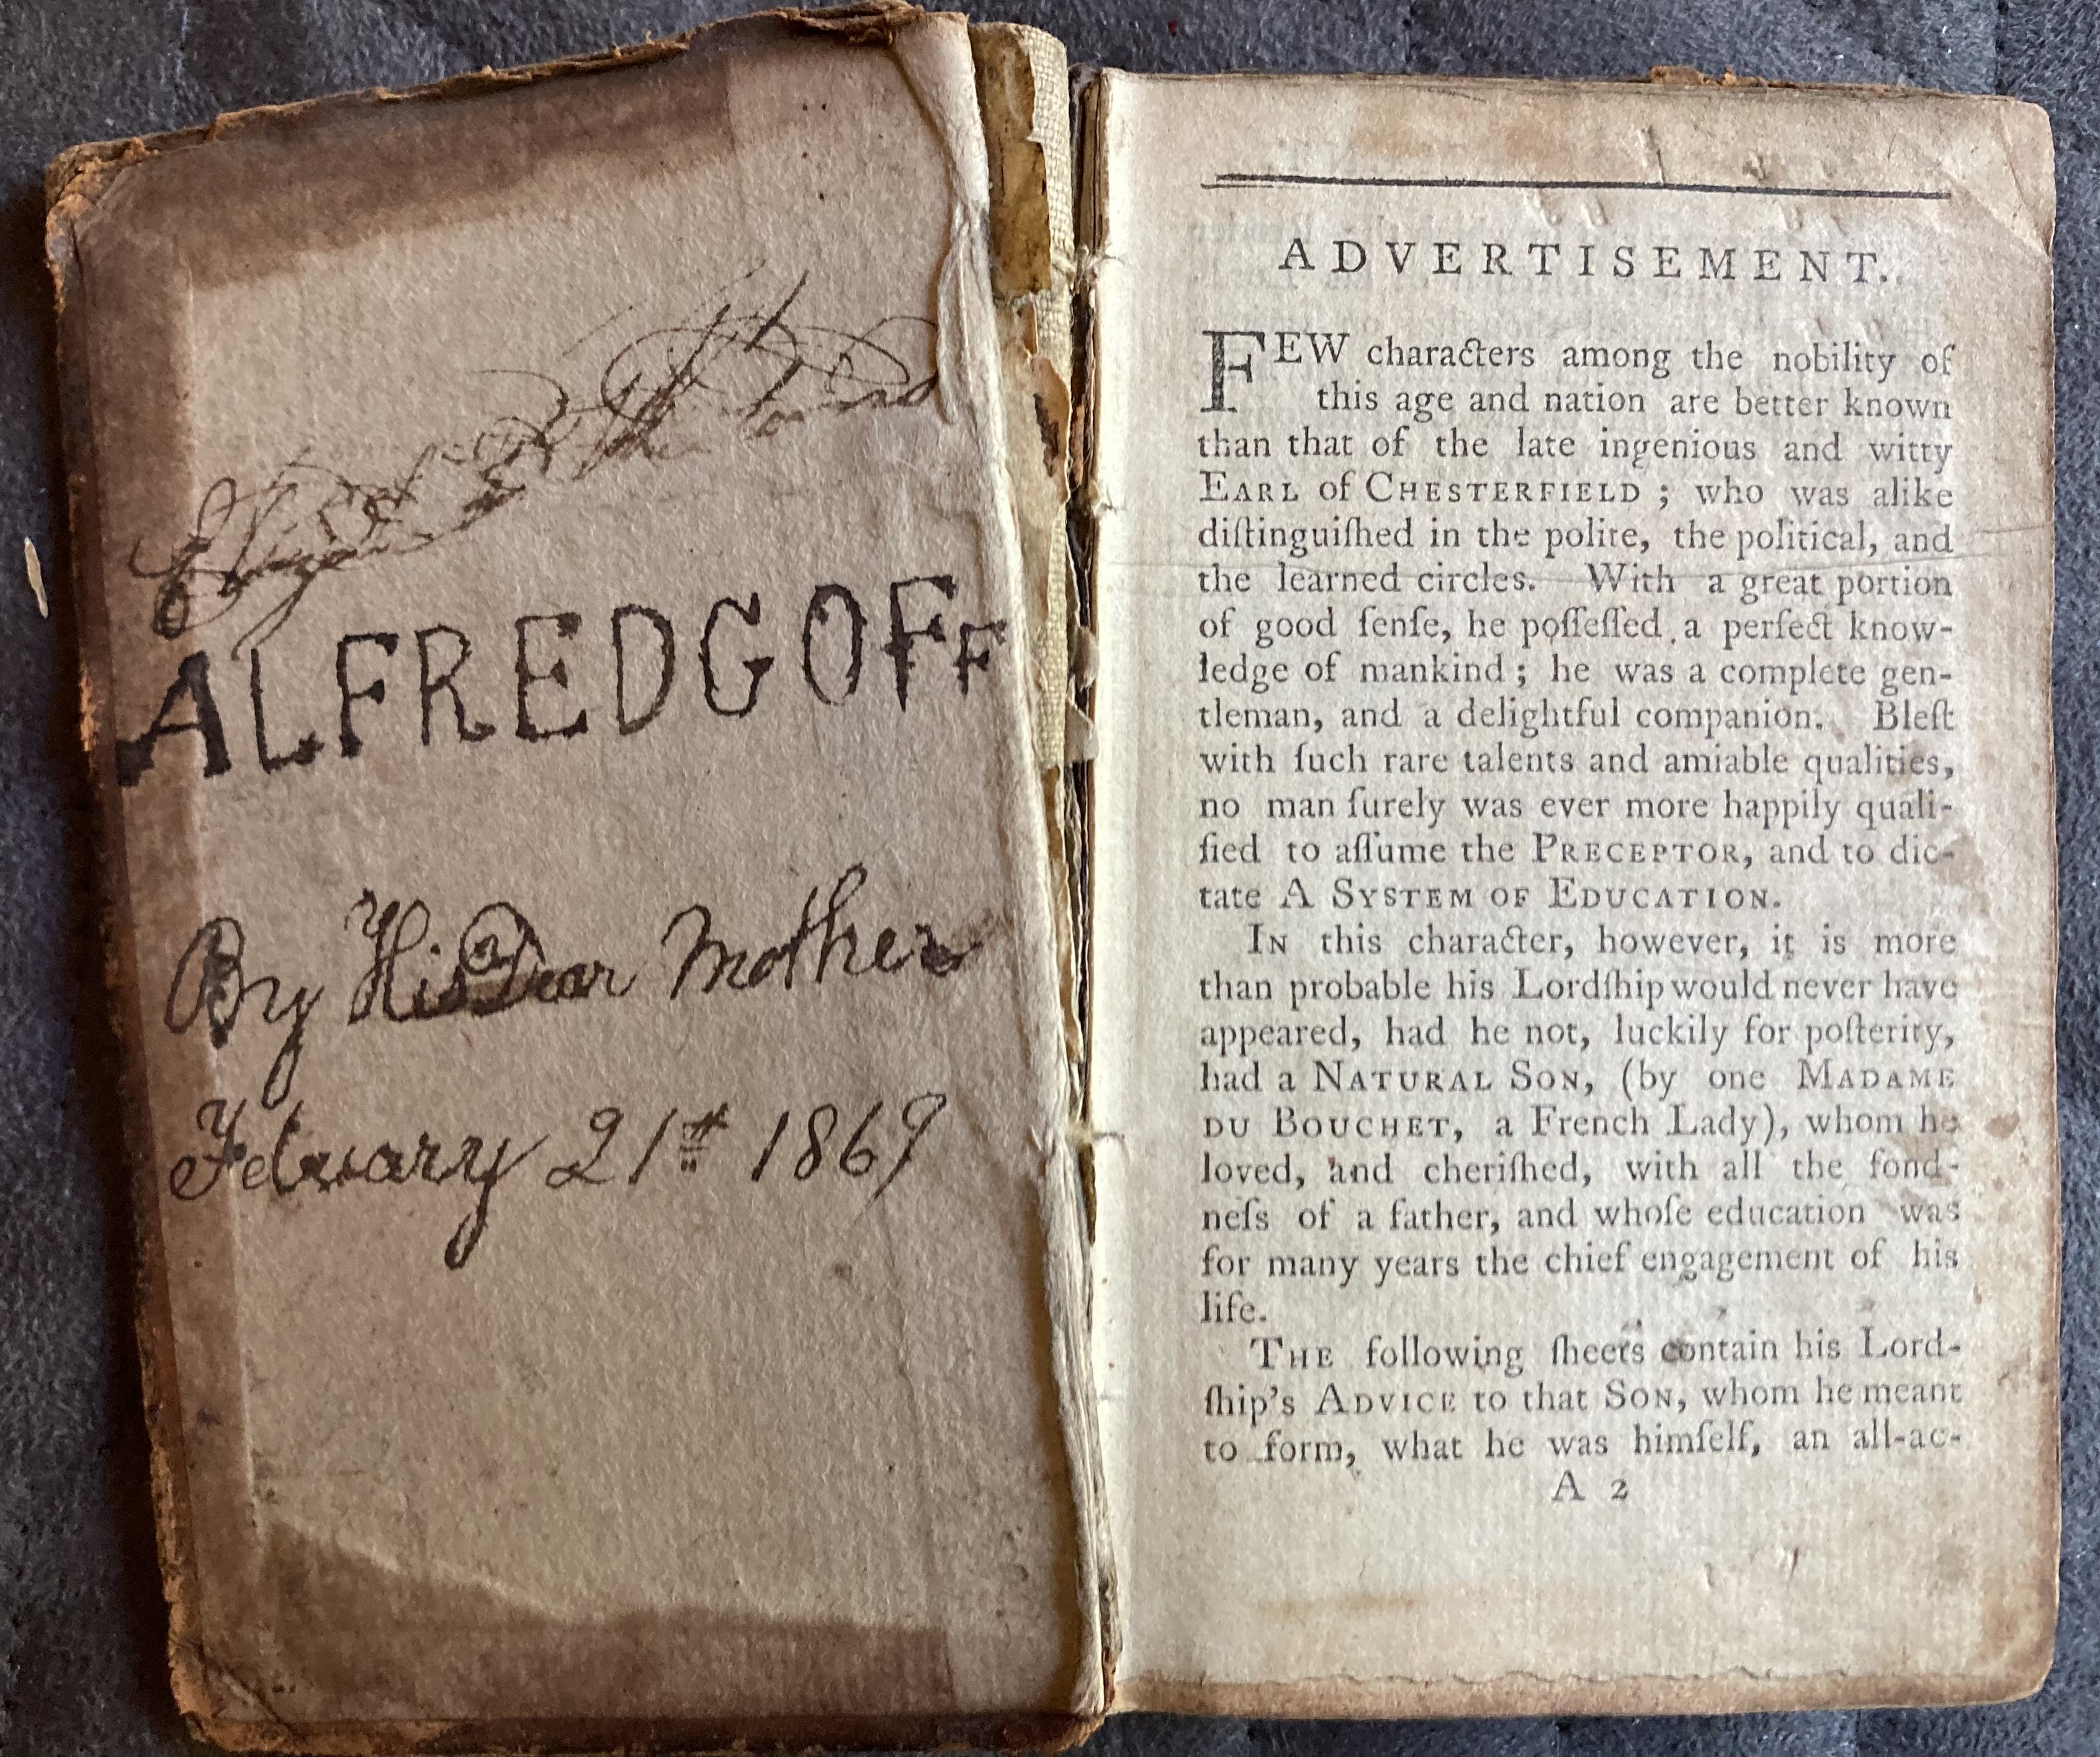 ALFRED GOFF
By His Dear Mother
February 21st 1869
ADVERTISEMENT.
FEW characters among the nobility of
this age and nation are better known
than that of the late ingenious and witty
EARL of CHESTERFIELD ; who was alike
diſtinguiſhed in the polite, the political, and
the learned circles. With a great portion
of good ſenſe, he poſſeſſed a perfect know-
ledge of mankind ; he was a complete gen-
tleman, and a delightful companion. Bleſt
with ſuch rare talents and amiable qualities,
no man ſurely was ever more happily quali-
fied to aſſume the PRECEPTOR, and to dic-
tate A SYSTEM OF EDUCATION.
IN this character, however, it is more
than probable his Lordſhip would never have
appeared, had he not, luckily for poſterity,
had a NATURAL SON, (by one MADAME
DU BOUCHET, a French Lady), whom he
loved, and cheriſhed, with all the fond-
neſs of a father, and whoſe education was
for many years the chief engagement of his
life.
THE following ſheets contain his Lord-
ſhip's ADVICE to that SON, whom he meant
to form, what he was himſelf, an all-ac-
A 2